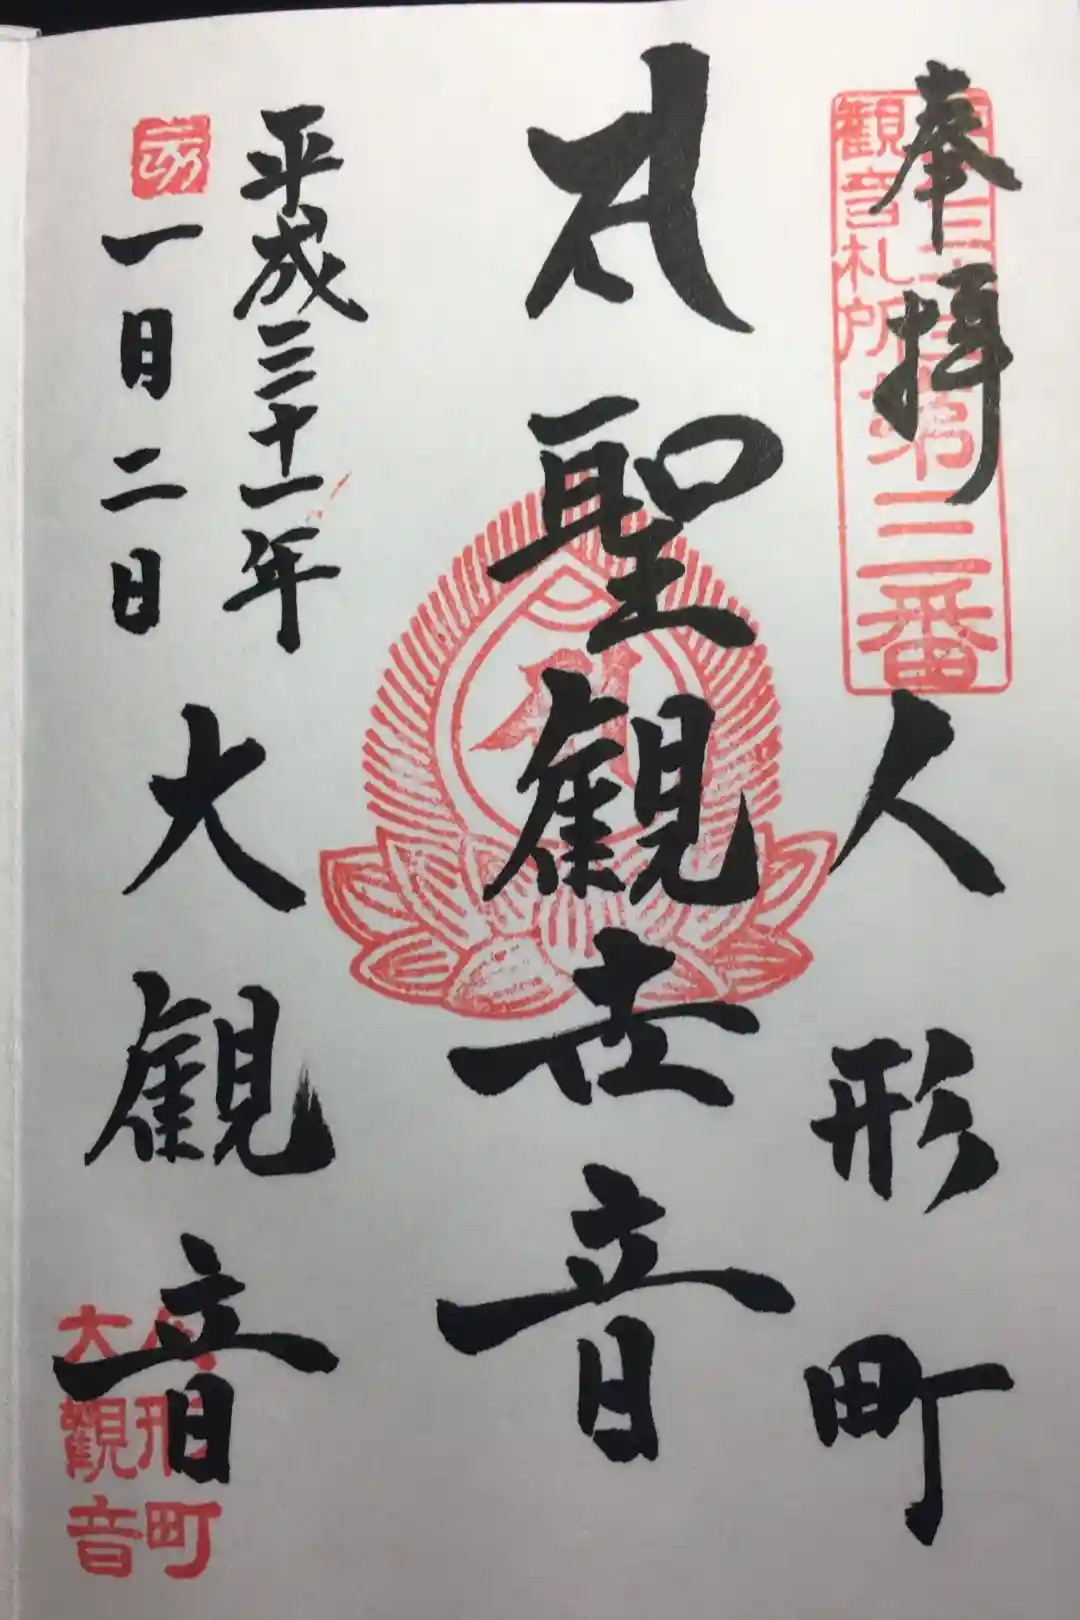 奉拝
人形町
観音札所第三番
聖観世音
平成三十一年
一月二日
大観音
人形町
大観音